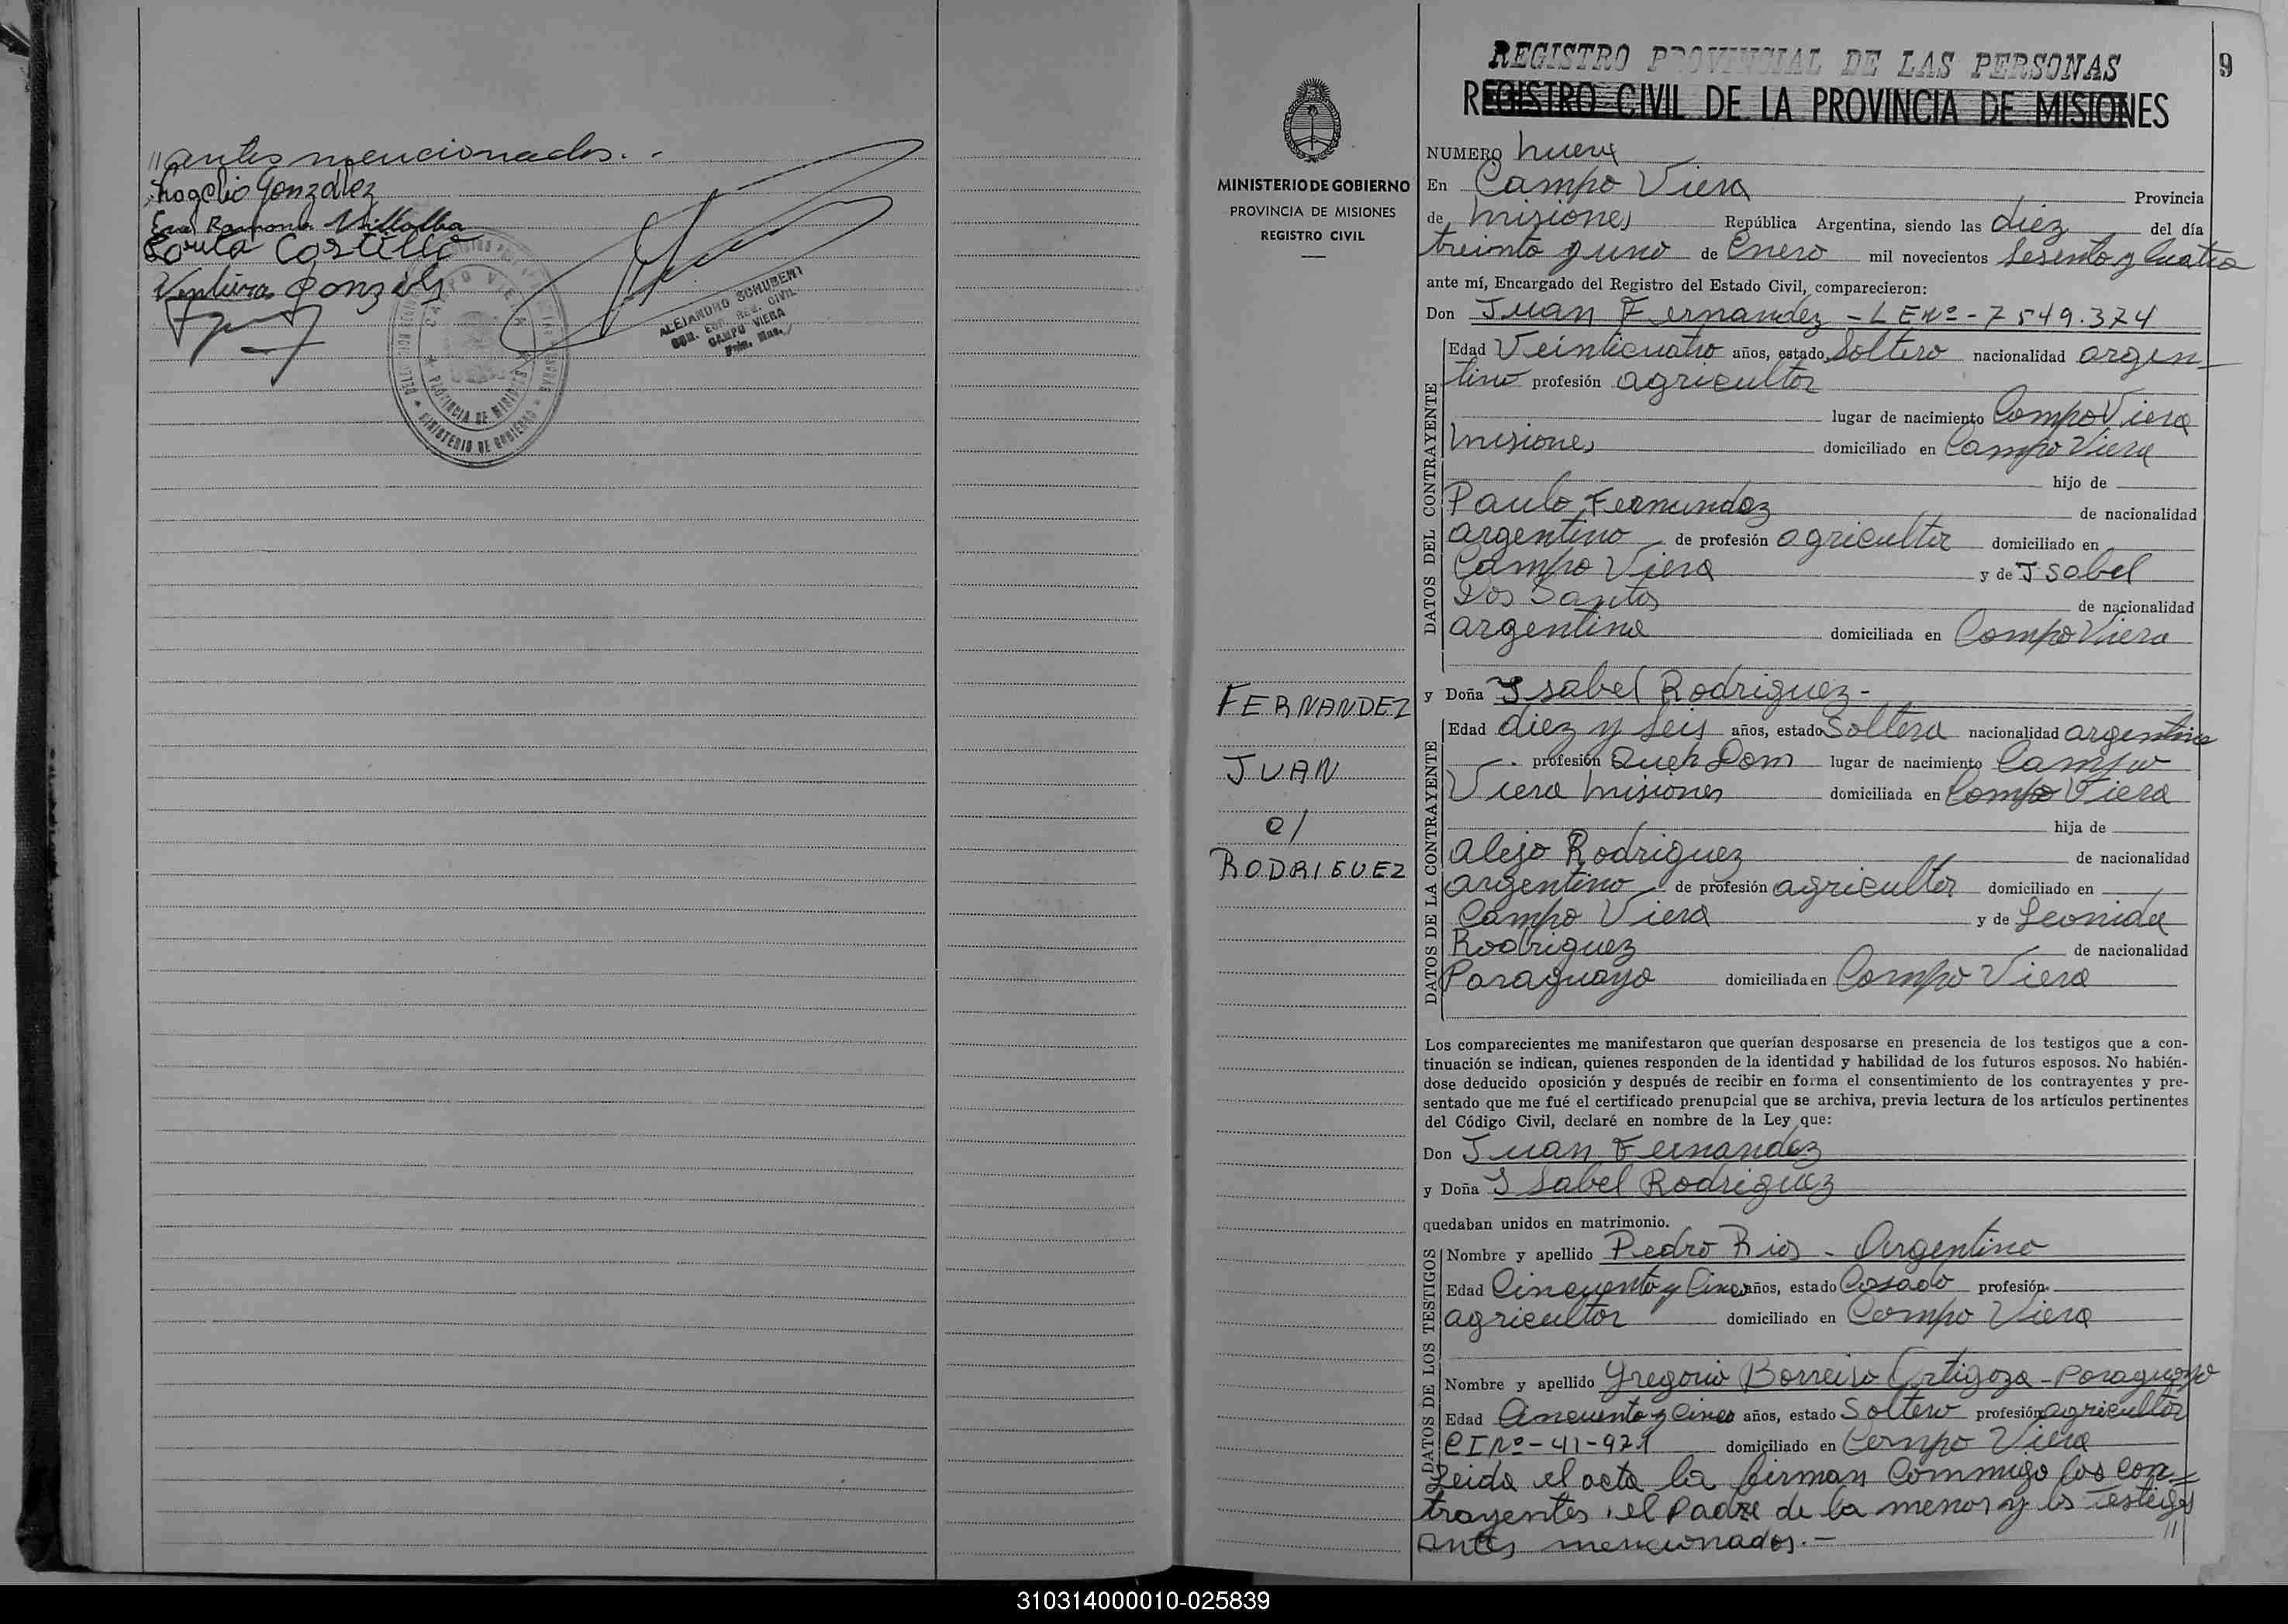 // antes mencionados. -
Rogelio Gonzalez
Eva Ramona Villalba
Costilla
Ventura Gonzales
CAMPO VIERA
PROVINCIA DE MISIONES
MINISTERIO DE GOBIERNO
ALEJANDRO SCHUBERT
CAMPO VIERA
MINISTERIO DE GOBIERNO
PROVINCIA DE MISIONES
REGISTRO CIVIL
FERNANDEZ
JUAN
c/
RODRIGUEZ
REGISTRO PROVINCIAL DE LAS PERSONAS
9
REGISTRO CIVIL DE LA PROVINCIA DE MISIONES
NUMERO nueve
En Campo Viera Provincia
de Misiones República Argentina, siendo las diez del día
treinta y uno de Enero mil novecientos Sesenta y Cuatro
ante mí, Encargado del Registro del Estado Civil, comparecieron:
Don Juan Fernandez - L E Nº - 7549.374
DATOS DEL CONTRAYENTE
Edad Veinticuatro años, estado Soltero nacionalidad argen-
tino profesión agricultor
lugar de nacimiento Campo Viera
Misiones domiciliado en Campo Viera
hijo de
Paulo Fernandez de nacionalidad
argentino de profesión agricultor domiciliado en
Campo Viera y de Isabel
Dos Santos de nacionalidad
argentina domiciliada en Campo Viera
y Doña Isabel Rodriguez -
DATOS DE LA CONTRAYENTE
Edad diez y seis años, estado Soltera nacionalidad argentina
profesión Queh Dom lugar de nacimiento Campo
Viera Misiones domiciliada en Campo Viera
hija de
Alejo Rodriguez de nacionalidad
argentino de profesión agricultor domiciliado en
Campo Viera y de Leonida
Rodriguez de nacionalidad
Paraguaya domiciliada en Campo Viera
Los comparecientes me manifestaron que querían desposarse en presencia de los testigos que a con-
tinuación se indican, quienes responden de la identidad y habilidad de los futuros esposos. No habién-
dose deducido oposición y después de recibir en forma el consentimiento de los contrayentes y pre-
sentado que me fué el certificado prenupcial que se archiva, previa lectura de los artículos pertinentes
del Código Civil, declaré en nombre de la Ley que:
Don Juan Fernandez
y Doña Isabel Rodriguez
quedaban unidos en matrimonio.
DATOS DE LOS TESTIGOS
Nombre y apellido Pedro Rios - Argentino
Edad Cincuenta y Cinco años, estado Casado profesión
agricultor domiciliado en Campo Viera
Nombre y apellido Gregorio Borreiro Ortigoza - Paraguayo
Edad Cincuenta y Cinco años, estado Soltero profesión agricultor
CI Nº - 41-921 domiciliado en Campo Viera
Leida el acta la firman Commigo los con=
trayentes, el Padre de la menor y los testigos
antes mencionados. - //
310314000010-025839